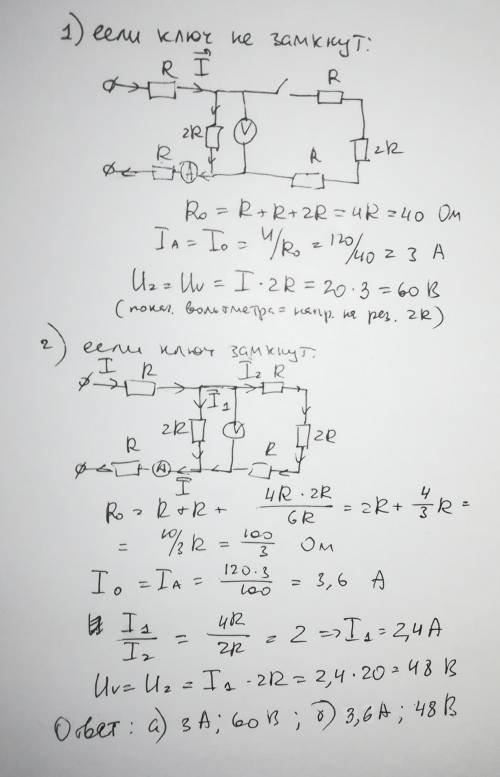 1) если ключ не замкнут:
R I R
2R V 2R
R A R
R₀ = R + R + 2R = 4R = 40 Ом
I_A = I₀ = U/R₀ = 120/40 = 3 А
U₂ = U_V = I · 2R = 20 · 3 = 60 В
(показ. вольтметра = напр. на рез. 2R)
2) если ключ замкнут:
I R I₂ R
I₁
2R V 2R
R A I R
R₀ = R + R + 4R · 2R / 6R = 2R + 4/3 R =
= 10/3 R = 100/3 Ом
I₀ = I_A = 120 · 3 / 100 = 3,6 А
I₁/I₂ = 4R/2R = 2 ⇒ I₁ = 2,4 А
U_V = U₂ = I₁ · 2R = 2,4 · 20 = 48 В
Ответ: а) 3 А; 60 В; б) 3,6 А; 48 В